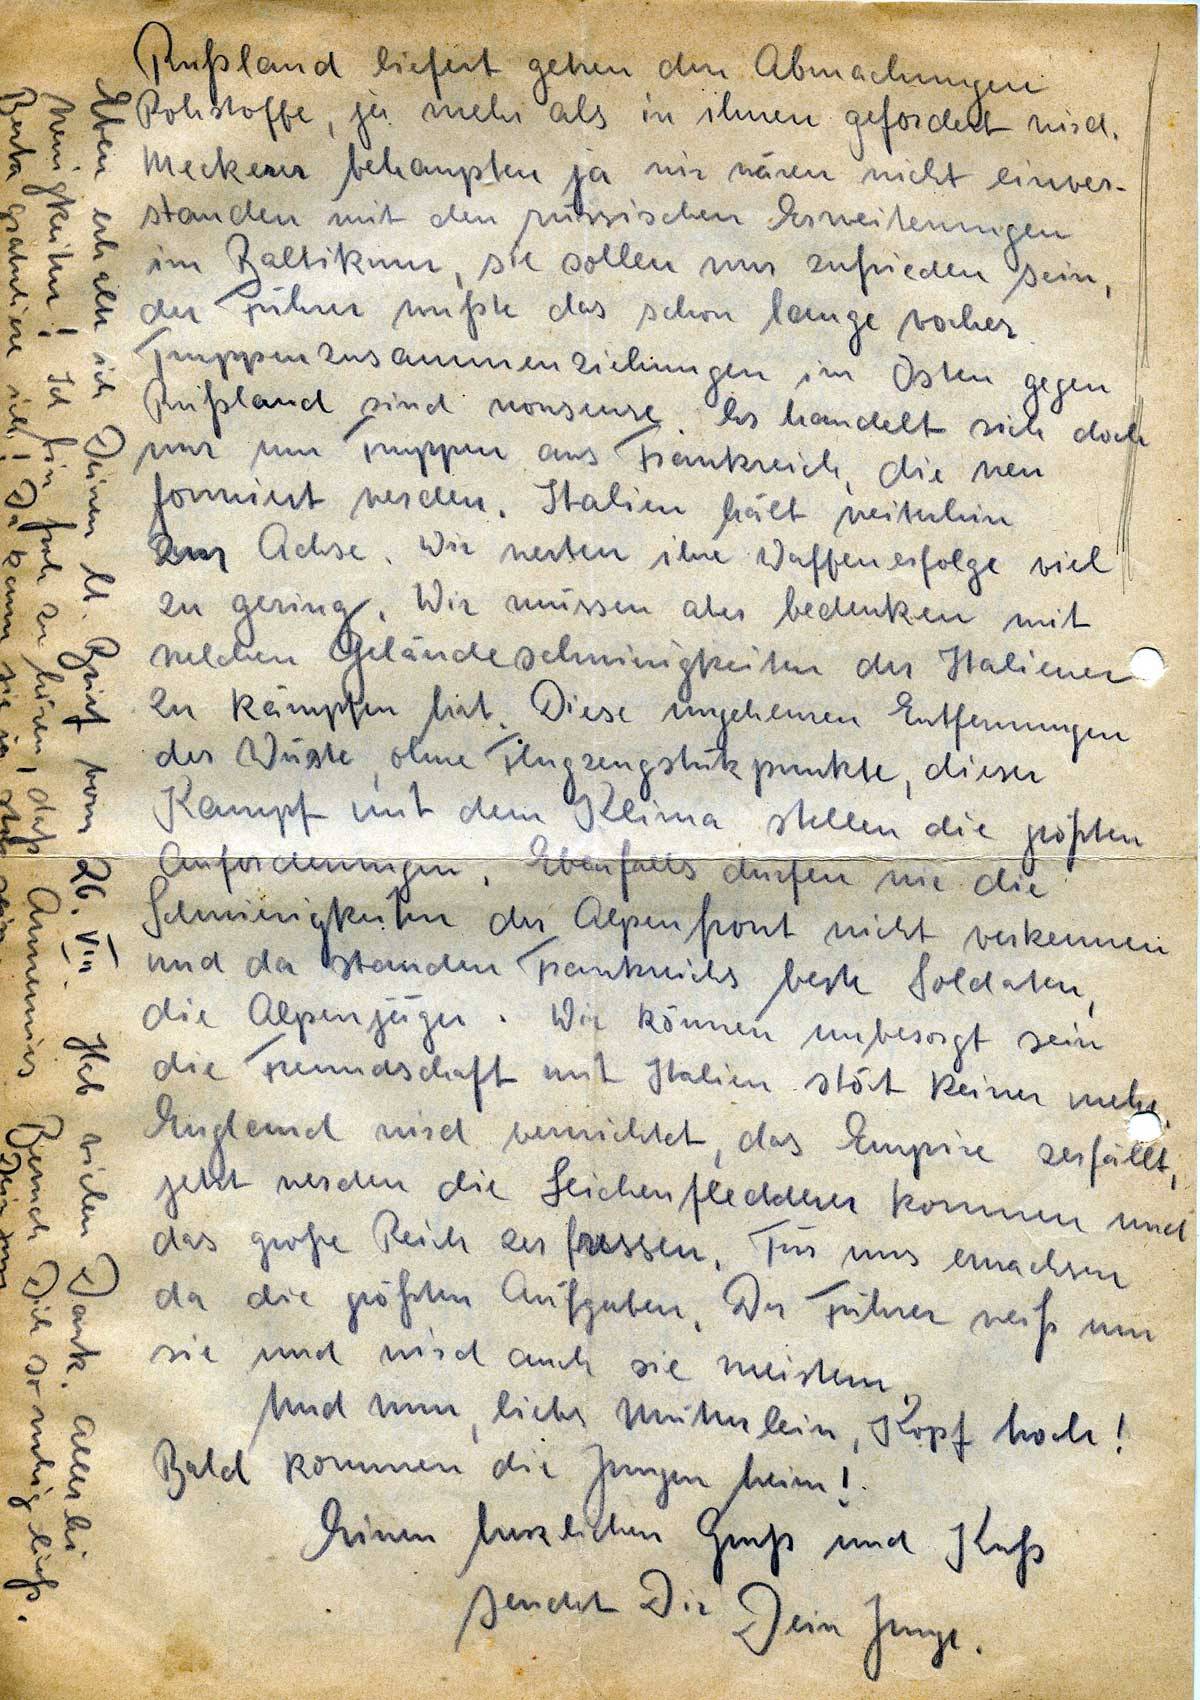 Rußland liefert gehen den Abmachungen
Rohstoffe, ja mehr als in ihnen gefordert wird.
Meckerer behaupten ja wir wären nicht einver-
standen mit den russischen Erweiterungen
im Baltikum, sie sollen nur zufrieden sein,
der Führer wußte das schon lange vorher.
Truppenzusammenziehungen im Osten gegen
Rußland sind nonsense. Es handelt sich doch
nur um Truppen aus Frankreich, die neu
formiert werden. Italien hält weiterhin
zur Achse. Wir werten ihre Waffenerfolge viel
zu gering. Wir müssen aber bedenken mit
welchen Geländeschwierigkeiten der Italiener
zu kämpfen hat. Diese ungeheuren Entfernungen
der Wüste, ohne Flugzeugstützpunkte, dieser
Kampf mit dem Klima stellen die größten
Anforderungen. Ebenfalls dürfen wir die
Schwierigkeiten der Alpenfront nicht verkennen
und da standen Frankreichs beste Soldaten,
die Alpenjäger. Wir können unbesorgt sein
die Freundschaft mit Italien stört keiner mehr.
England wird vernichtet, das Empire zerfällt,
jetzt werden die Leichenfledderer kommen und
das große Reich zerfressen. Für uns erwachsen
da die größten Aufgaben. Der Führer weiß um
sie und wird auch sie meistern.
Und nun, liebs Mütterlein, Kopf hoch!
Bald kommen die Jungen heim!
Einen herzlichen Gruß und Kuß
sendet Dir Dein Junge.
Eben erhalte ich Deinen lb. Brief vom 26. VII. Hab vielen Dank. Allerlei
Neuigkeiten! Ich bin froh zu hören, daß Annemies Besuch Dich so ruhig ließ.
Berta gratuliere ich! Da kann sie ja stolz sein. Dein Junge